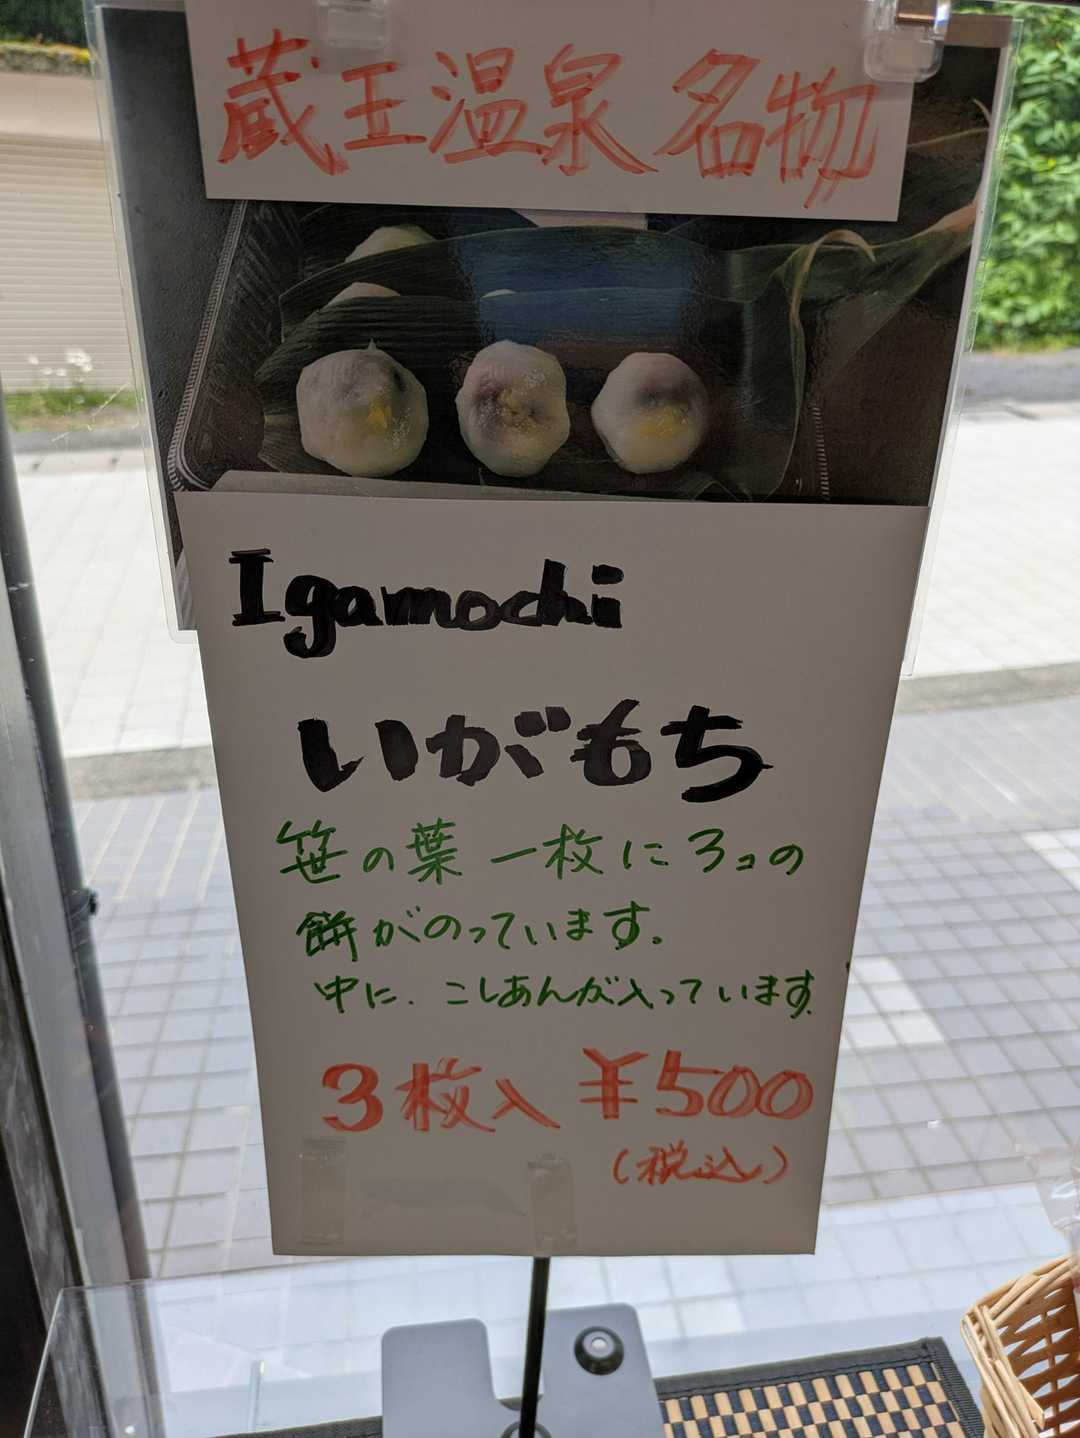 蔵王温泉 名物
Igamochi
いがもち
笹の葉一枚に3コの
餅がのっています。
中に、こしあんが入っています。
3枚入 ¥500
(税込)